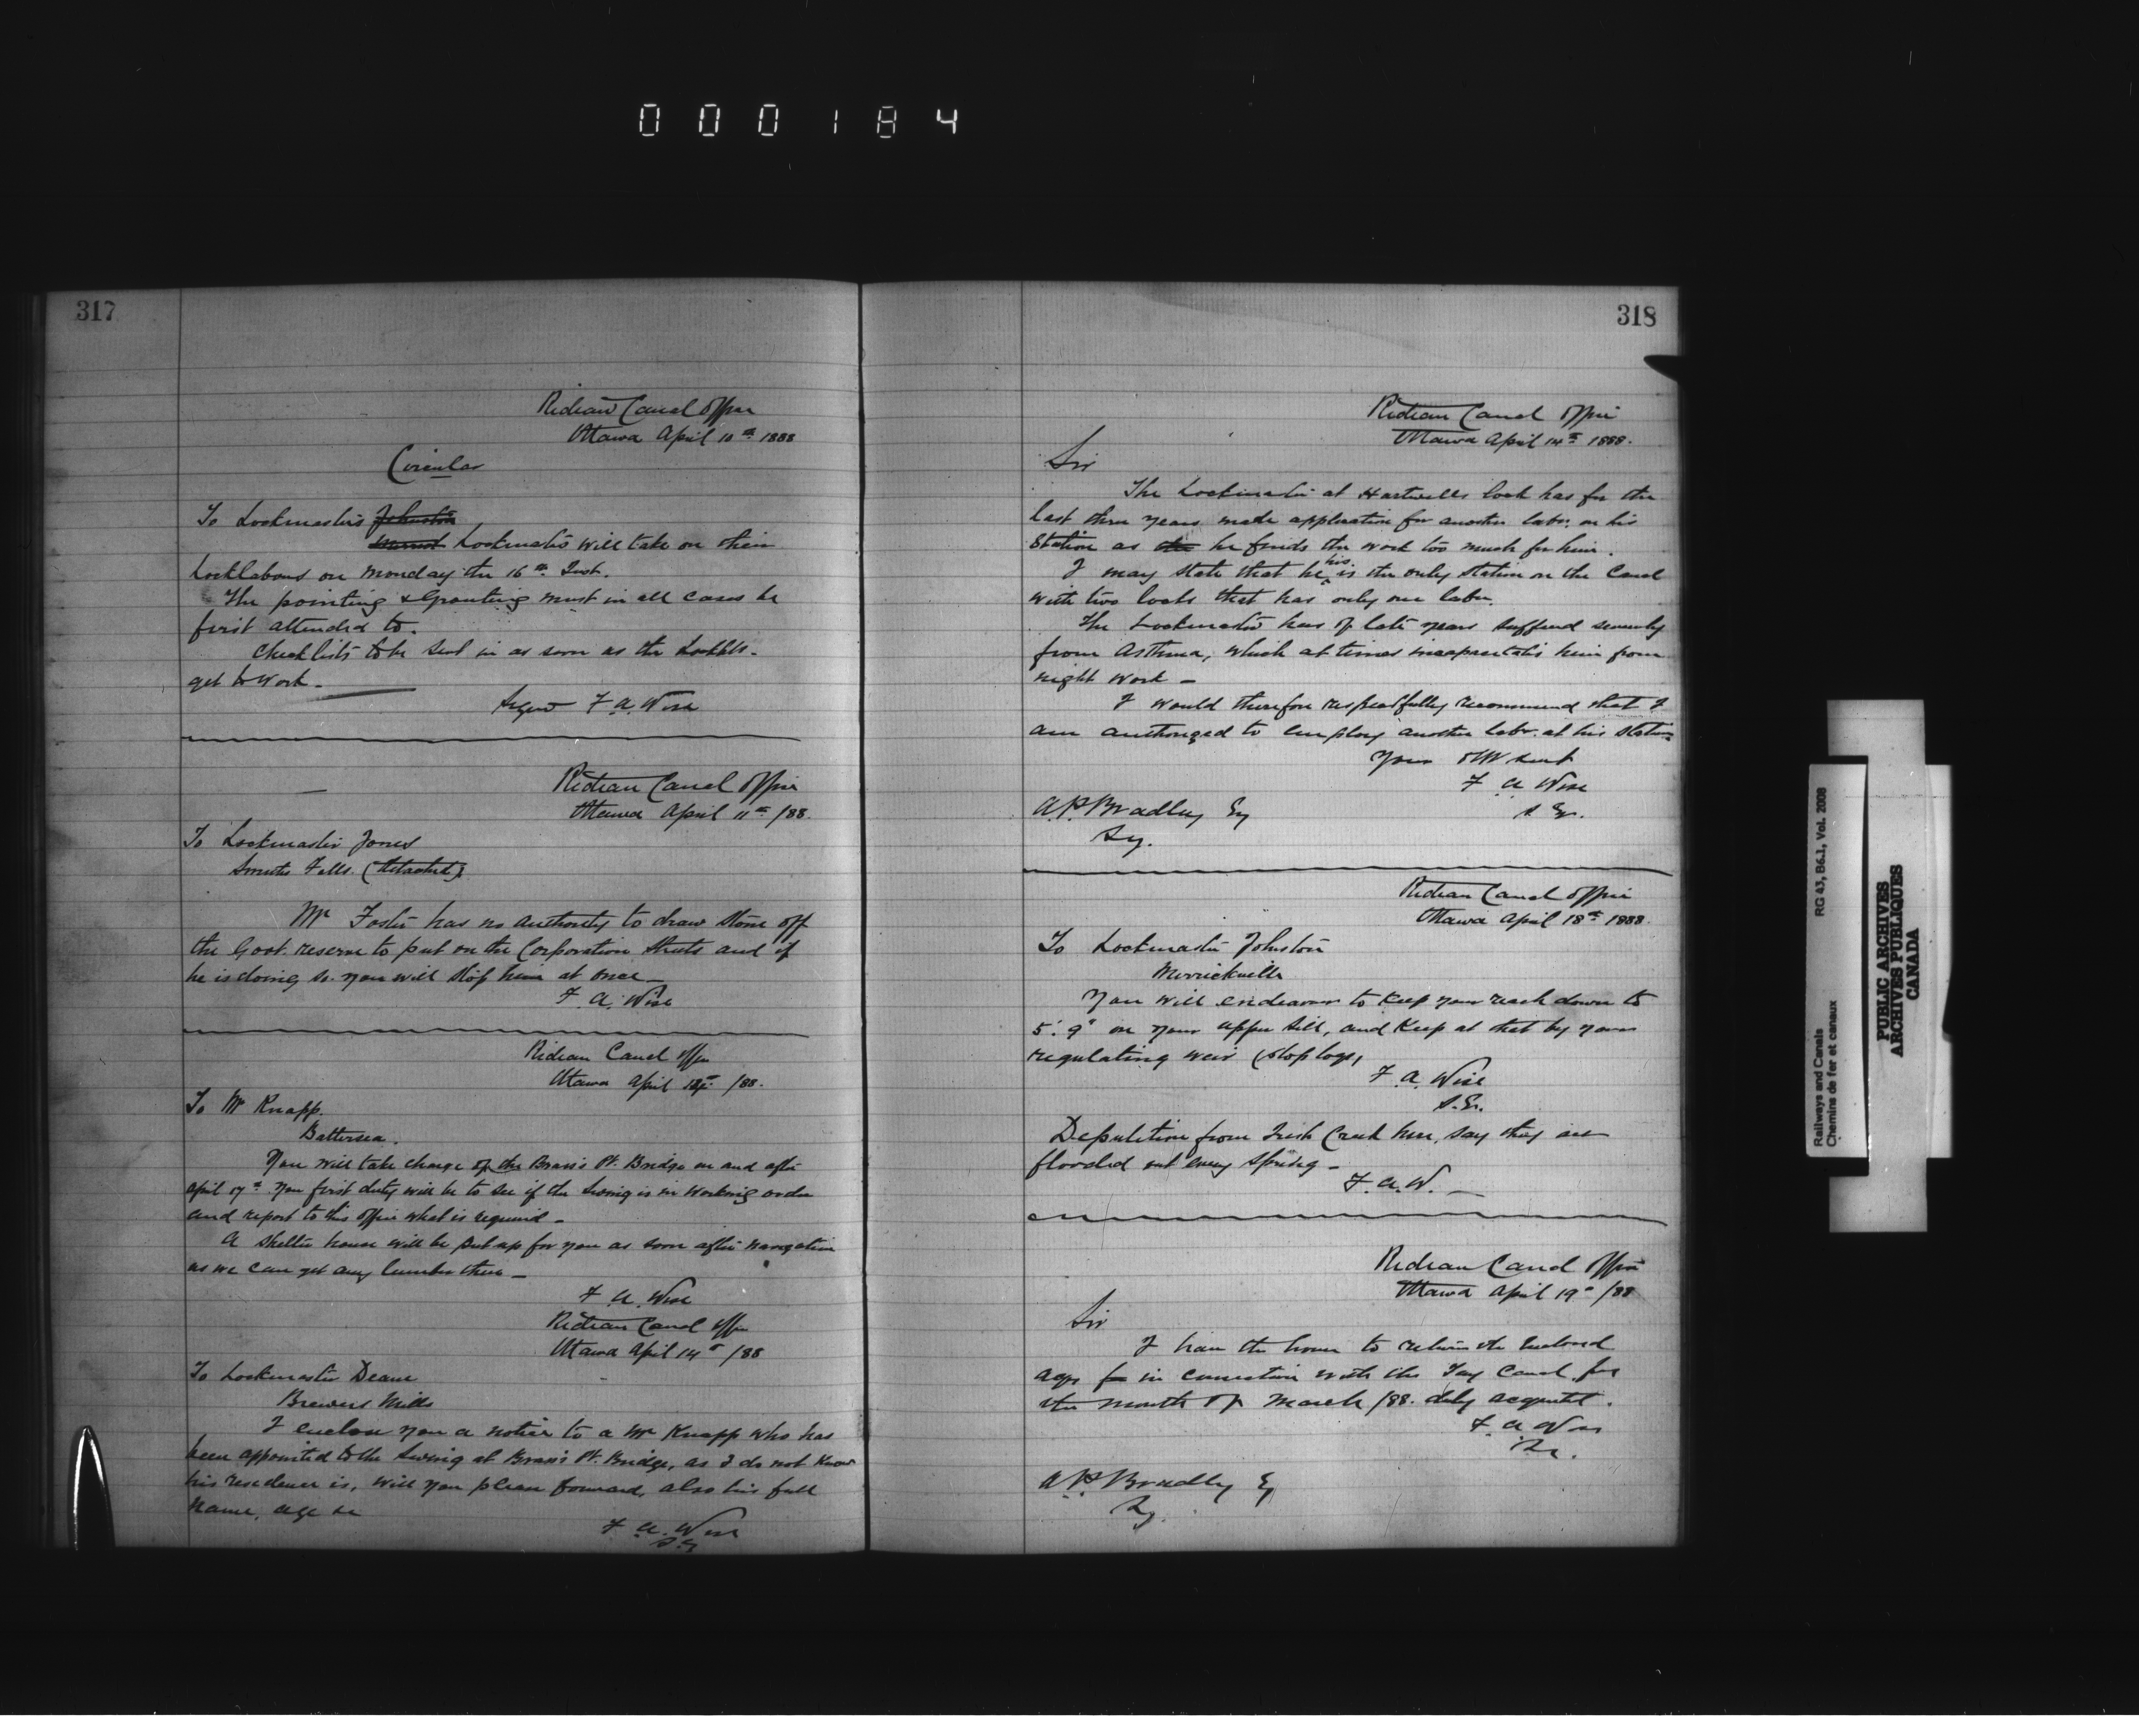 000184
317
Rideau Canal Office
Ottawa April 10th 1888
Circular
To Lockmasters Johnston
Lockmasters will take on their
Locklabourers on Monday the 16th Inst.
The pointing & Grouting must in all cases be
first attended to.
Check lists to be sent in as soon as the Locklbs.
get to work.
Signed F. A. Wise
Rideau Canal Office
Ottawa April 11th /88.
To Lockmaster Jones
Smiths Falls (Detached)
Mr Foster has no authority to draw stone off
the Govt. reserve to put on the Corporation streets and if
he is doing so you will stop him at once
F. A. Wise
Rideau Canal Office
Ottawa April /88.
To Mr Knapp.
Battersea.
You will take charge of the Brass's Pt. Bridge on and after
April 17th. You first duty will be to see if the Swing is in working order
and report to this office what is required.
A shelter house will be put up for you as soon after navigation
as we can get any lumber there
F. A. Wise
Rideau Canal Office
Ottawa April 14th /88
To Lockmaster Deane
Brewers Mills
I enclose you a notice to a Mr Knapp who has
been appointed to the Swing at Brass's Pt. Bridge, as I do not know
his residence is, will you please forward, also his full
name, age &c
F. A. Wise
S.E.
318
Rideau Canal Office
Ottawa April 14th 1888.
Sir
The Lockmaster at Hartwells lock has for the
last three years made application for another labr. on his
Station as he finds the work too much for him.
I may state that his is the only station on the Canal
with two locks that has only one labr.
The Lockmaster has of late years suffered severely
from Asthma, which at times incapacitates him from
night work
I would therefore respectfully recommend that I
am authorized to employ another labr. at his station
Your Obt Servt
F. A. Wise
S. Er.
A. P. Bradley Esq
Secy.
Rideau Canal Office
Ottawa April 18th 1888.
To Lockmaster Johnston
Merrickville
You will endeavour to keep your reach down to
5'. 9" on your upper sill, and keep at that by your
regulating weir (stoplogs)
F. A. Wise
S. Er.
Deputation from Irish Creek here, say they are
flooded out every spring
F. A. W.
Rideau Canal Office
Ottawa April 19th /88
Sir
I have the honor to return the enclosed
accts in connection with the Tay Canal for
the month of March /88. duly
F. A. Wise
A. P. Bradley Esq
Secy.
Railways and Canals
Chemins de fer et canaux
RG 43, B6.1, Vol. 2008
PUBLIC ARCHIVES
ARCHIVES PUBLIQUES
CANADA